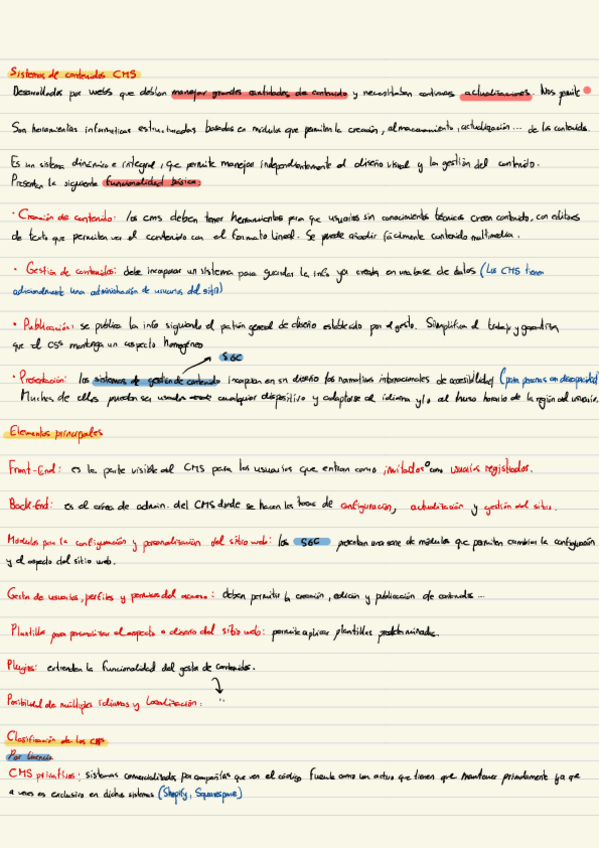 Sistemas de contenidos CMS
Desarrollados por webs que debían manejar grandes cantidades de contenido y necesitaban continuas actualizaciones. Nos permite
Son herramientas informaticas estructuradas basadas en módulos que permiten la creación, almacenamiento, actualización... de los contenidos.
Es un sistema dinámico e integral, que permite manejar independientemente el diseño visual y la gestión del contenido.
Presentan la siguiente funcionalidad básica:
· Creación de contenido: los cms deben tener herramientas para que usuarios sin conocimientos técnicos creen contenido, con editores
de texto que permiten ver el contenido con el formato lineal. Se puede añadir fácilmente contenido multimedia.
· Gestión de contenidos: debe incorporar un sistema para guardar la info ya creada en una base de datos (Los CMS tienen
adicionalmente una administración de usuarios del sitio)
· Publicación: se publica la info siguiendo el patrón general de diseño establecido por el gestor. Simplifica el trabajo y garantiza
que el CSS mantenga un aspecto homogéneo
SGC
· Presentación: los sistemas de gestión de contenido incorporan en su diseño las normativas internacionales de accesibilidad (para personas con discapacidad)
Muchos de ellos pueden ser usados desde cualquier dispositivo y adaptarse al idioma y/o al huso horario de la región del usuario.
Elementos principales
Front-End: es la parte visible del CMS para los usuarios que entran como invitados o como usuarios registrados.
Back-End: es el area de admin. del CMS donde se hacen las tareas de configuración, actualización y gestión del sitio.
Modulos para la configuración y personalización del sitio web: los SGC presentan una serie de módulos que permiten cambiar la configuración
y el aspecto del sitio web.
Gestor de usuarios, perfiles y permisos del acceso: deben permitir la creación, edición y publicación de contenidos ...
Plantillas para personalizar el aspecto o diseño del sitio web: permite aplicar plantillas predeterminadas.
Plugins: extienden la funcionalidad del gestor de contenidos.
Posibilidad de múltiples idiomas y localización: ..
Clasificación de los CMS
Por licencia
CMS privativos: sistemas comercializados por compañías que ven el código fuente como un activo que tienen que mantener privadamente ya que
a veces es exclusivo en dichos sistemas (Shopify, Squarespace)